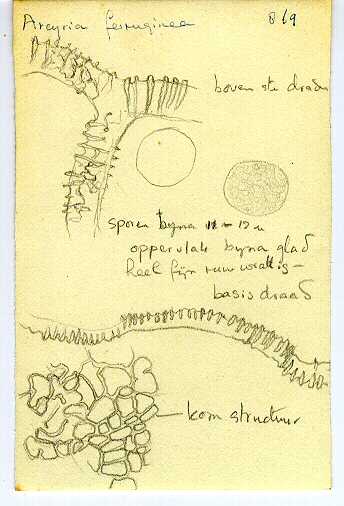 Arcyria ferruginea
869
bovenste draden
sporen byna 11-12 u
oppervlak byna glad
heel fijn ruw wrattig-
basis draad
kom structuur